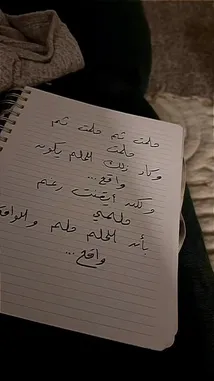 حلمت ثم حلمت ثم
حلمت
وكاد ذلك الحلم يكون
واقع...
ولكن أيقنت رغم
حلمي
بأن الحلم حلم والواقع
واقع...